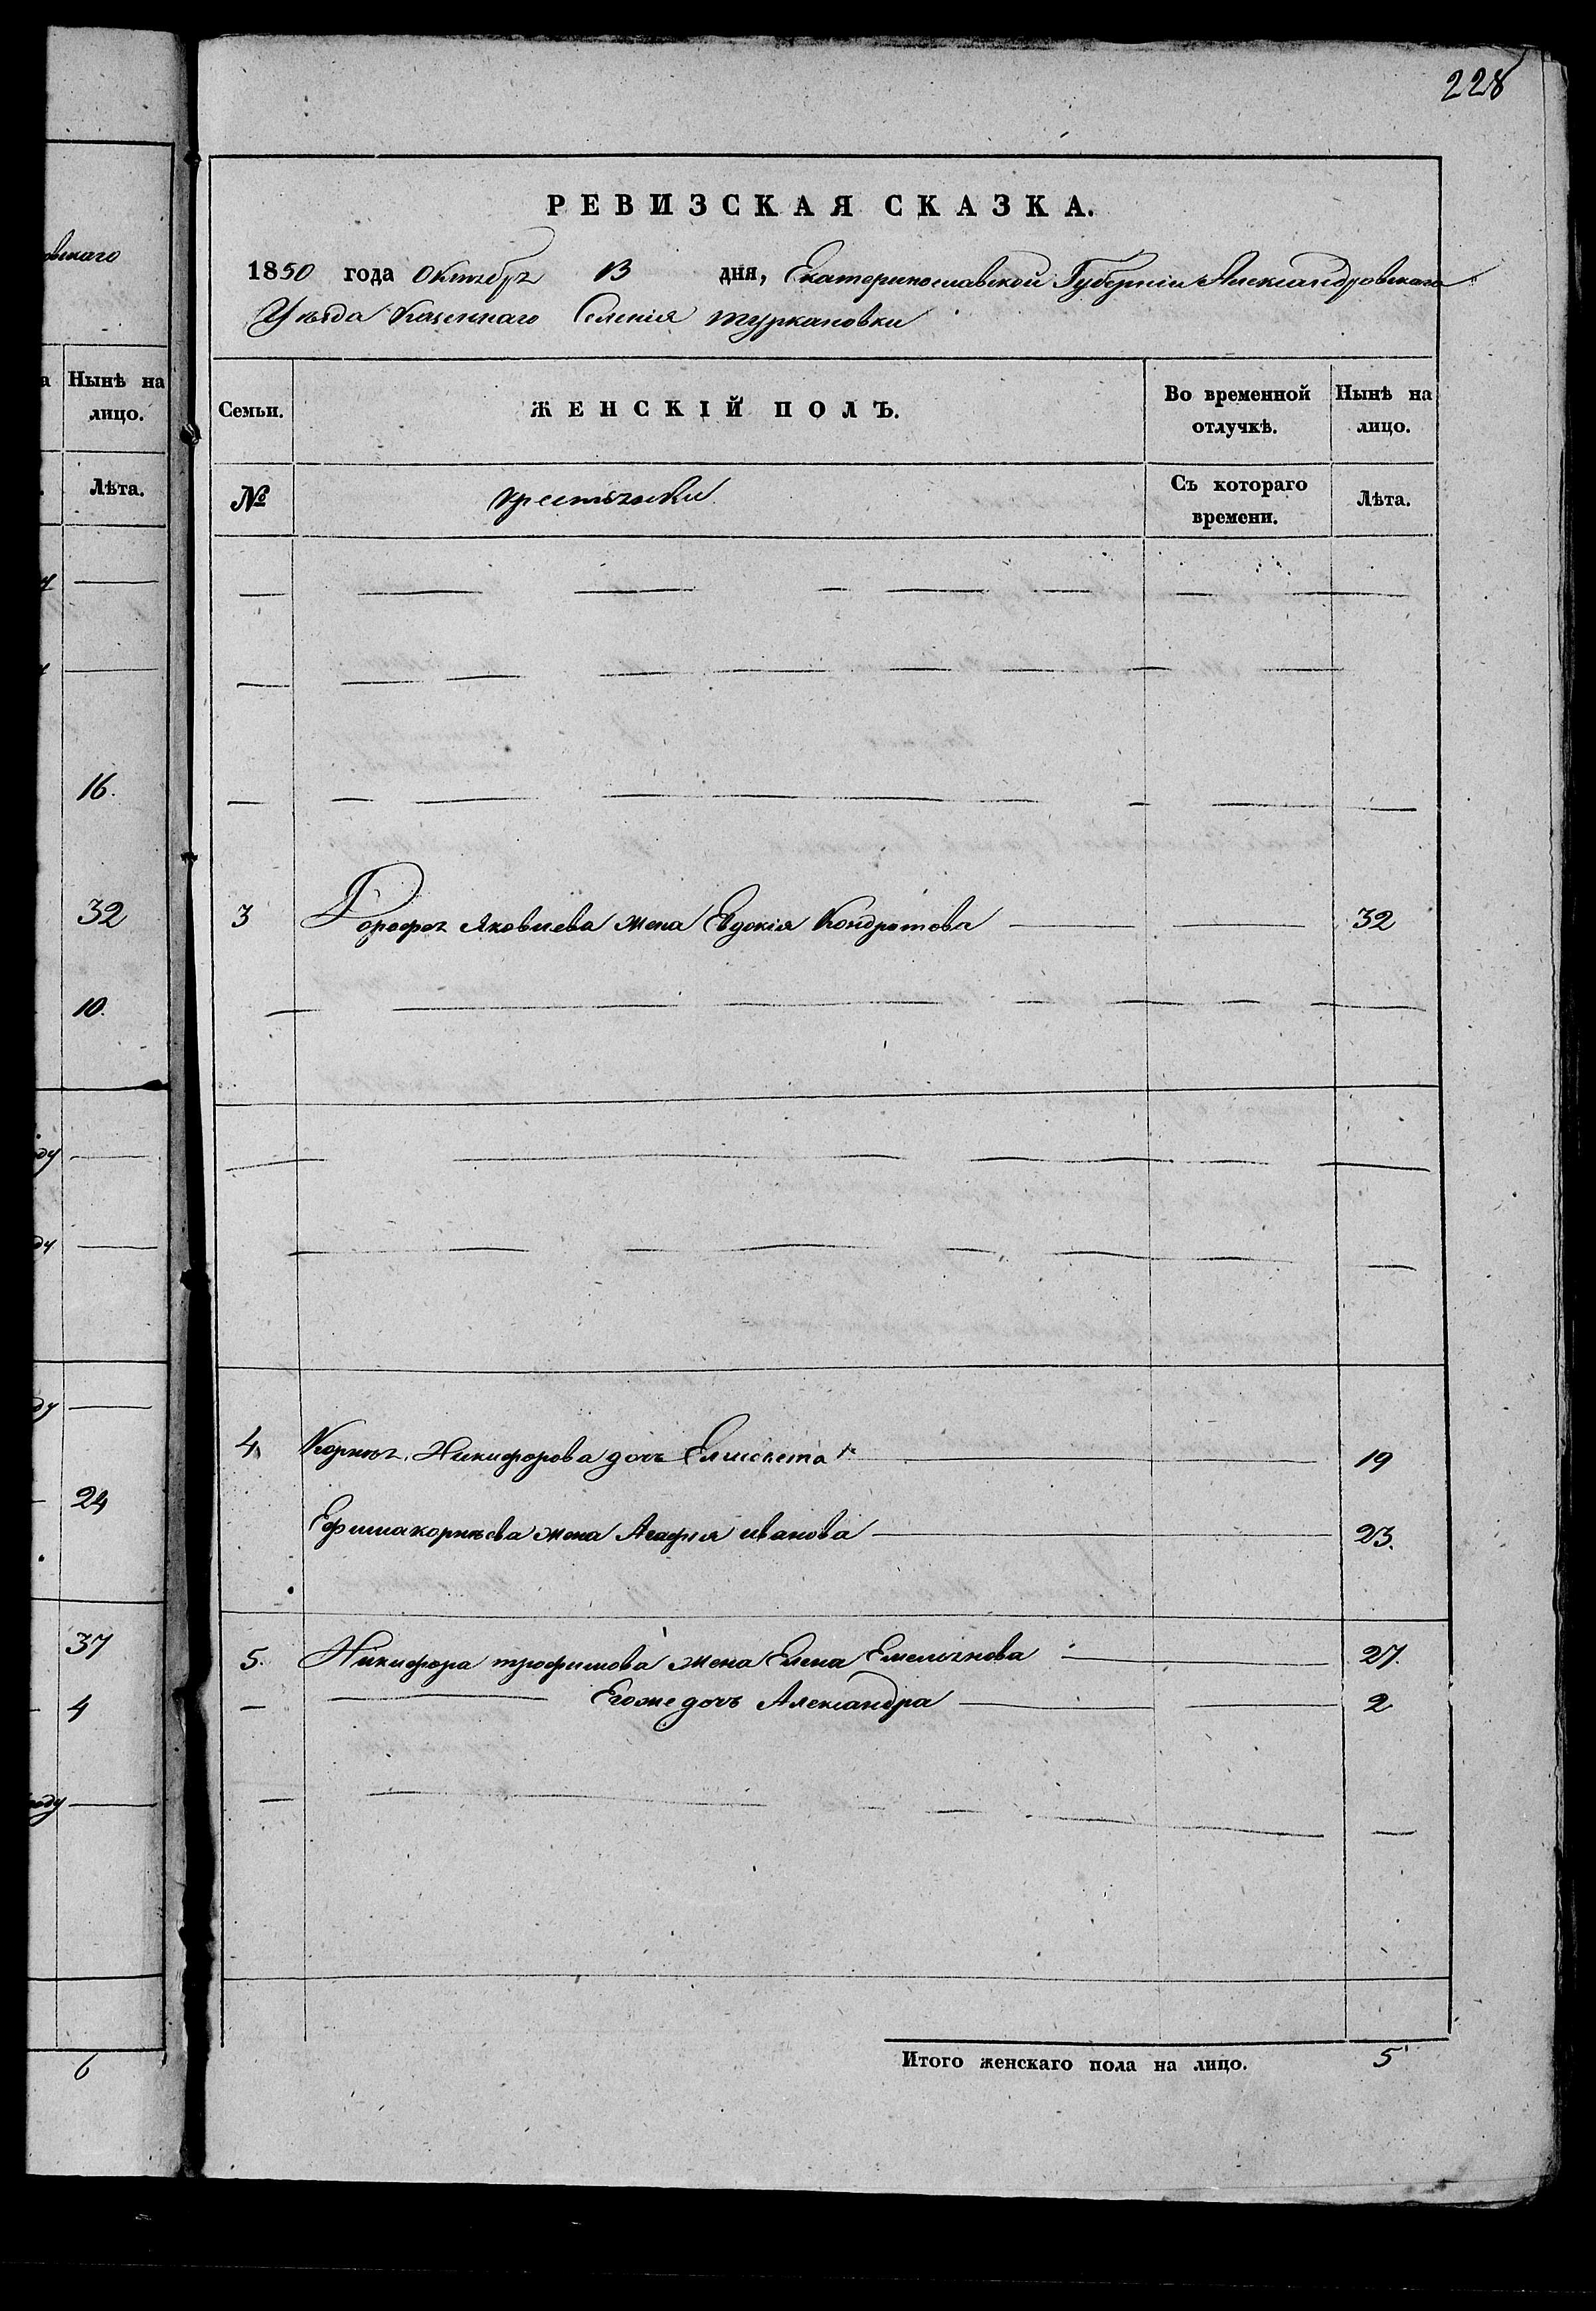 228
РЕВИЗСКАЯ СКАЗКА.
1850 года Октября 13 дня, Екатеринославской Губерніи Александровскаго
Уѣзда Казеннаго Селенія Туркановки
Семьи. ЖЕНСКІЙ ПОЛЪ. Во временной отлучкѣ. Нынѣ на лицо.
№ Крестьянки Съ котораго времени. Лѣта.
3 Дорофея Яковлева жена Евдокія Кондратова 32
4 Корнѣя Никифорова дочь Елисавета 19
Ефима корнѣева жена Агафія иванова 23.
5. Никифора трофимова жена Елена Емельянова 27.
Егоже дочь Александра 2
Итого женскаго пола на лицо. 5
овскаго
Нынѣ на
лицо.
Лѣта.
16.
32
10.
ду
ду
ду
24
37
4
году
6